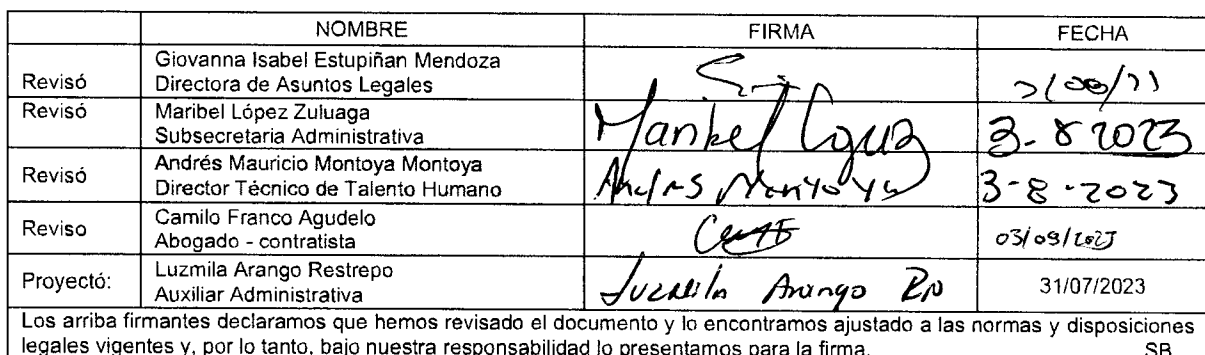 NOMBRE FIRMA FECHA
Giovanna Isabel Estupiñan Mendoza
Revisó Directora de Asuntos Legales
Revisó Maribel López Zuluaga
Subsecretaria Administrativa
Maribel 3-8 2023
Andrés Mauricio Montoya Montoya
Revisó Director Técnico de Talento Humano Andres Montoya 3-8-2023
Camilo Franco Agudelo
Reviso Abogado - contratista
Luzmila Arango Restrepo
Proyectó: Auxiliar Administrativa Luzmila Arango 31/07/2023
Los arriba firmantes declaramos que hemos revisado el documento y lo encontramos ajustado a las normas y disposiciones
legales vigentes y, por lo tanto, bajo nuestra responsabilidad lo presentamos para la firma. SB